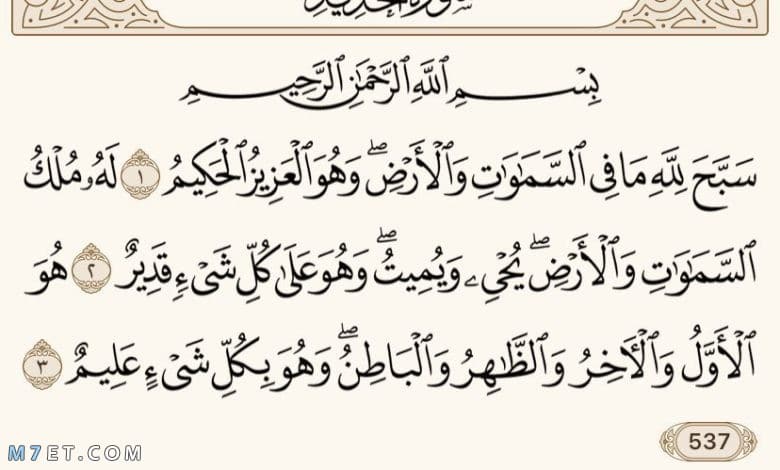 سورة الحديد
بِسْمِ ٱللَّهِ ٱلرَّحْمَٰنِ ٱلرَّحِيمِ
سَبَّحَ لِلَّهِ مَا فِى ٱلسَّمَٰوَٰتِ وَٱلْأَرْضِۖ وَهُوَ ٱلْعَزِيزُ ٱلْحَكِيمُ ١ لَهُۥ مُلْكُ
ٱلسَّمَٰوَٰتِ وَٱلْأَرْضِۖ يُحْىِۦ وَيُمِيتُۖ وَهُوَ عَلَىٰ كُلِّ شَىْءٍ قَدِيرٌ ٢ هُوَ
ٱلْأَوَّلُ وَٱلْءَاخِرُ وَٱلظَّٰهِرُ وَٱلْبَاطِنُۖ وَهُوَ بِكُلِّ شَىْءٍ عَلِيمٌ ٣
537
M7ET.COM